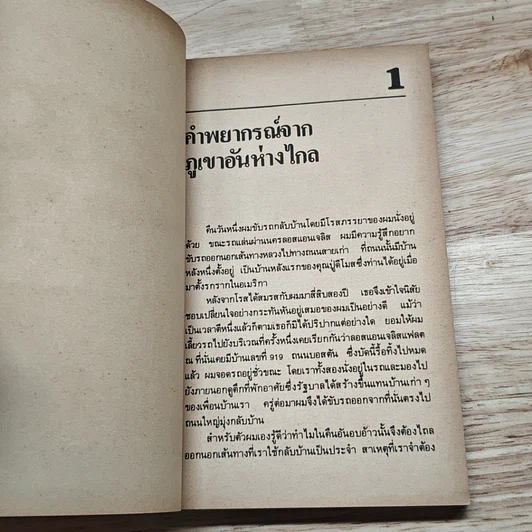 1
คำพยากรณ์จาก
ภูเขาอันห่างไกล
คืนวันหนึ่งผมขับรถกลับบ้านโดยมีโรสภรรยาของผมนั่งอยู่
ด้วย ขณะรถแล่นผ่านนครลอสแอนเจลิส ผมมีความรู้สึกอยาก
ขับรถออกนอกเส้นทางหลวงไปทางถนนสายเก่า ที่ถนนนั้นมีบ้าน
หลังหนึ่งตั้งอยู่ เป็นบ้านหลังแรกของคุณปู่ดีโมสซึ่งท่านได้อยู่เมื่อ
มาตั้งรกรากในอเมริกา
หลังจากโรสได้สมรสกับผมมาสี่สิบสองปี เธอจึงเข้าใจนิสัย
ชอบเปลี่ยนใจอย่างกระทันหันอยู่เสมอของผมเป็นอย่างดี แม้ว่า
เป็นเวลาตีหนึ่งแล้วก็ตามเธอก็มิได้ปริปากแต่อย่างใด ยอมให้ผม
เลี้ยวรถไปยังบริเวณที่ครั้งหนึ่งเคยเรียกกันว่าลอสแอนเจลิสแฟลต
ณ ที่นั่นเคยมีบ้านเลขที่ 919 ถนนบอสตัน ซึ่งบัดนี้รื้อทิ้งไปหมด
แล้ว ผมจอดรถอยู่ชั่วขณะ โดยเราทั้งสองนั่งอยู่ในรถและมองไป
ยังภายนอกดูตึกที่พักอาศัยซึ่งรัฐบาลได้สร้างขึ้นแทนบ้านเก่า ๆ
ของเพื่อนบ้านเรา ครู่ต่อมาผมจึงได้ขับรถออกจากที่นั่นตรงไป
ถนนใหญ่มุ่งกลับบ้าน
สำหรับตัวผมเองรู้ดีว่าทำไมในคืนอันอบอ้าวนั้นจึงต้องไถล
ออกนอกเส้นทางที่เราใช้กลับบ้านเป็นประจำ สาเหตุที่เราจำต้อง